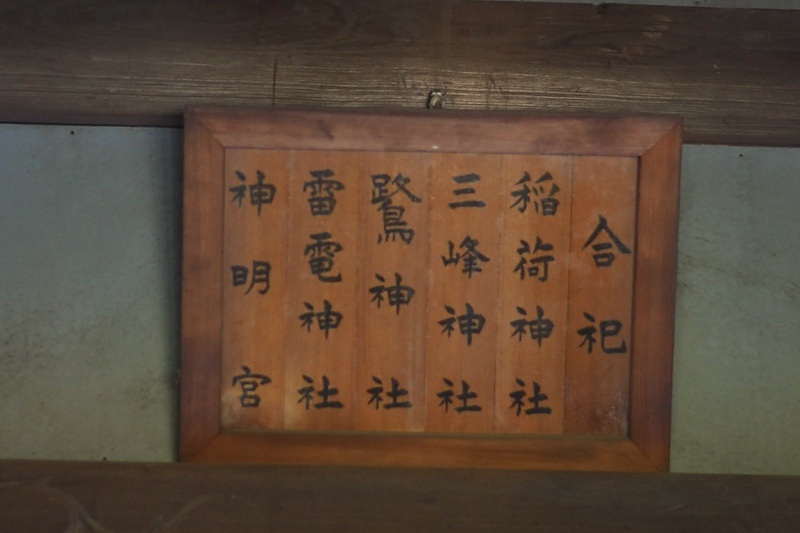 合祀
稲荷神社
三峰神社
鷲神社
雷電神社
神明宮